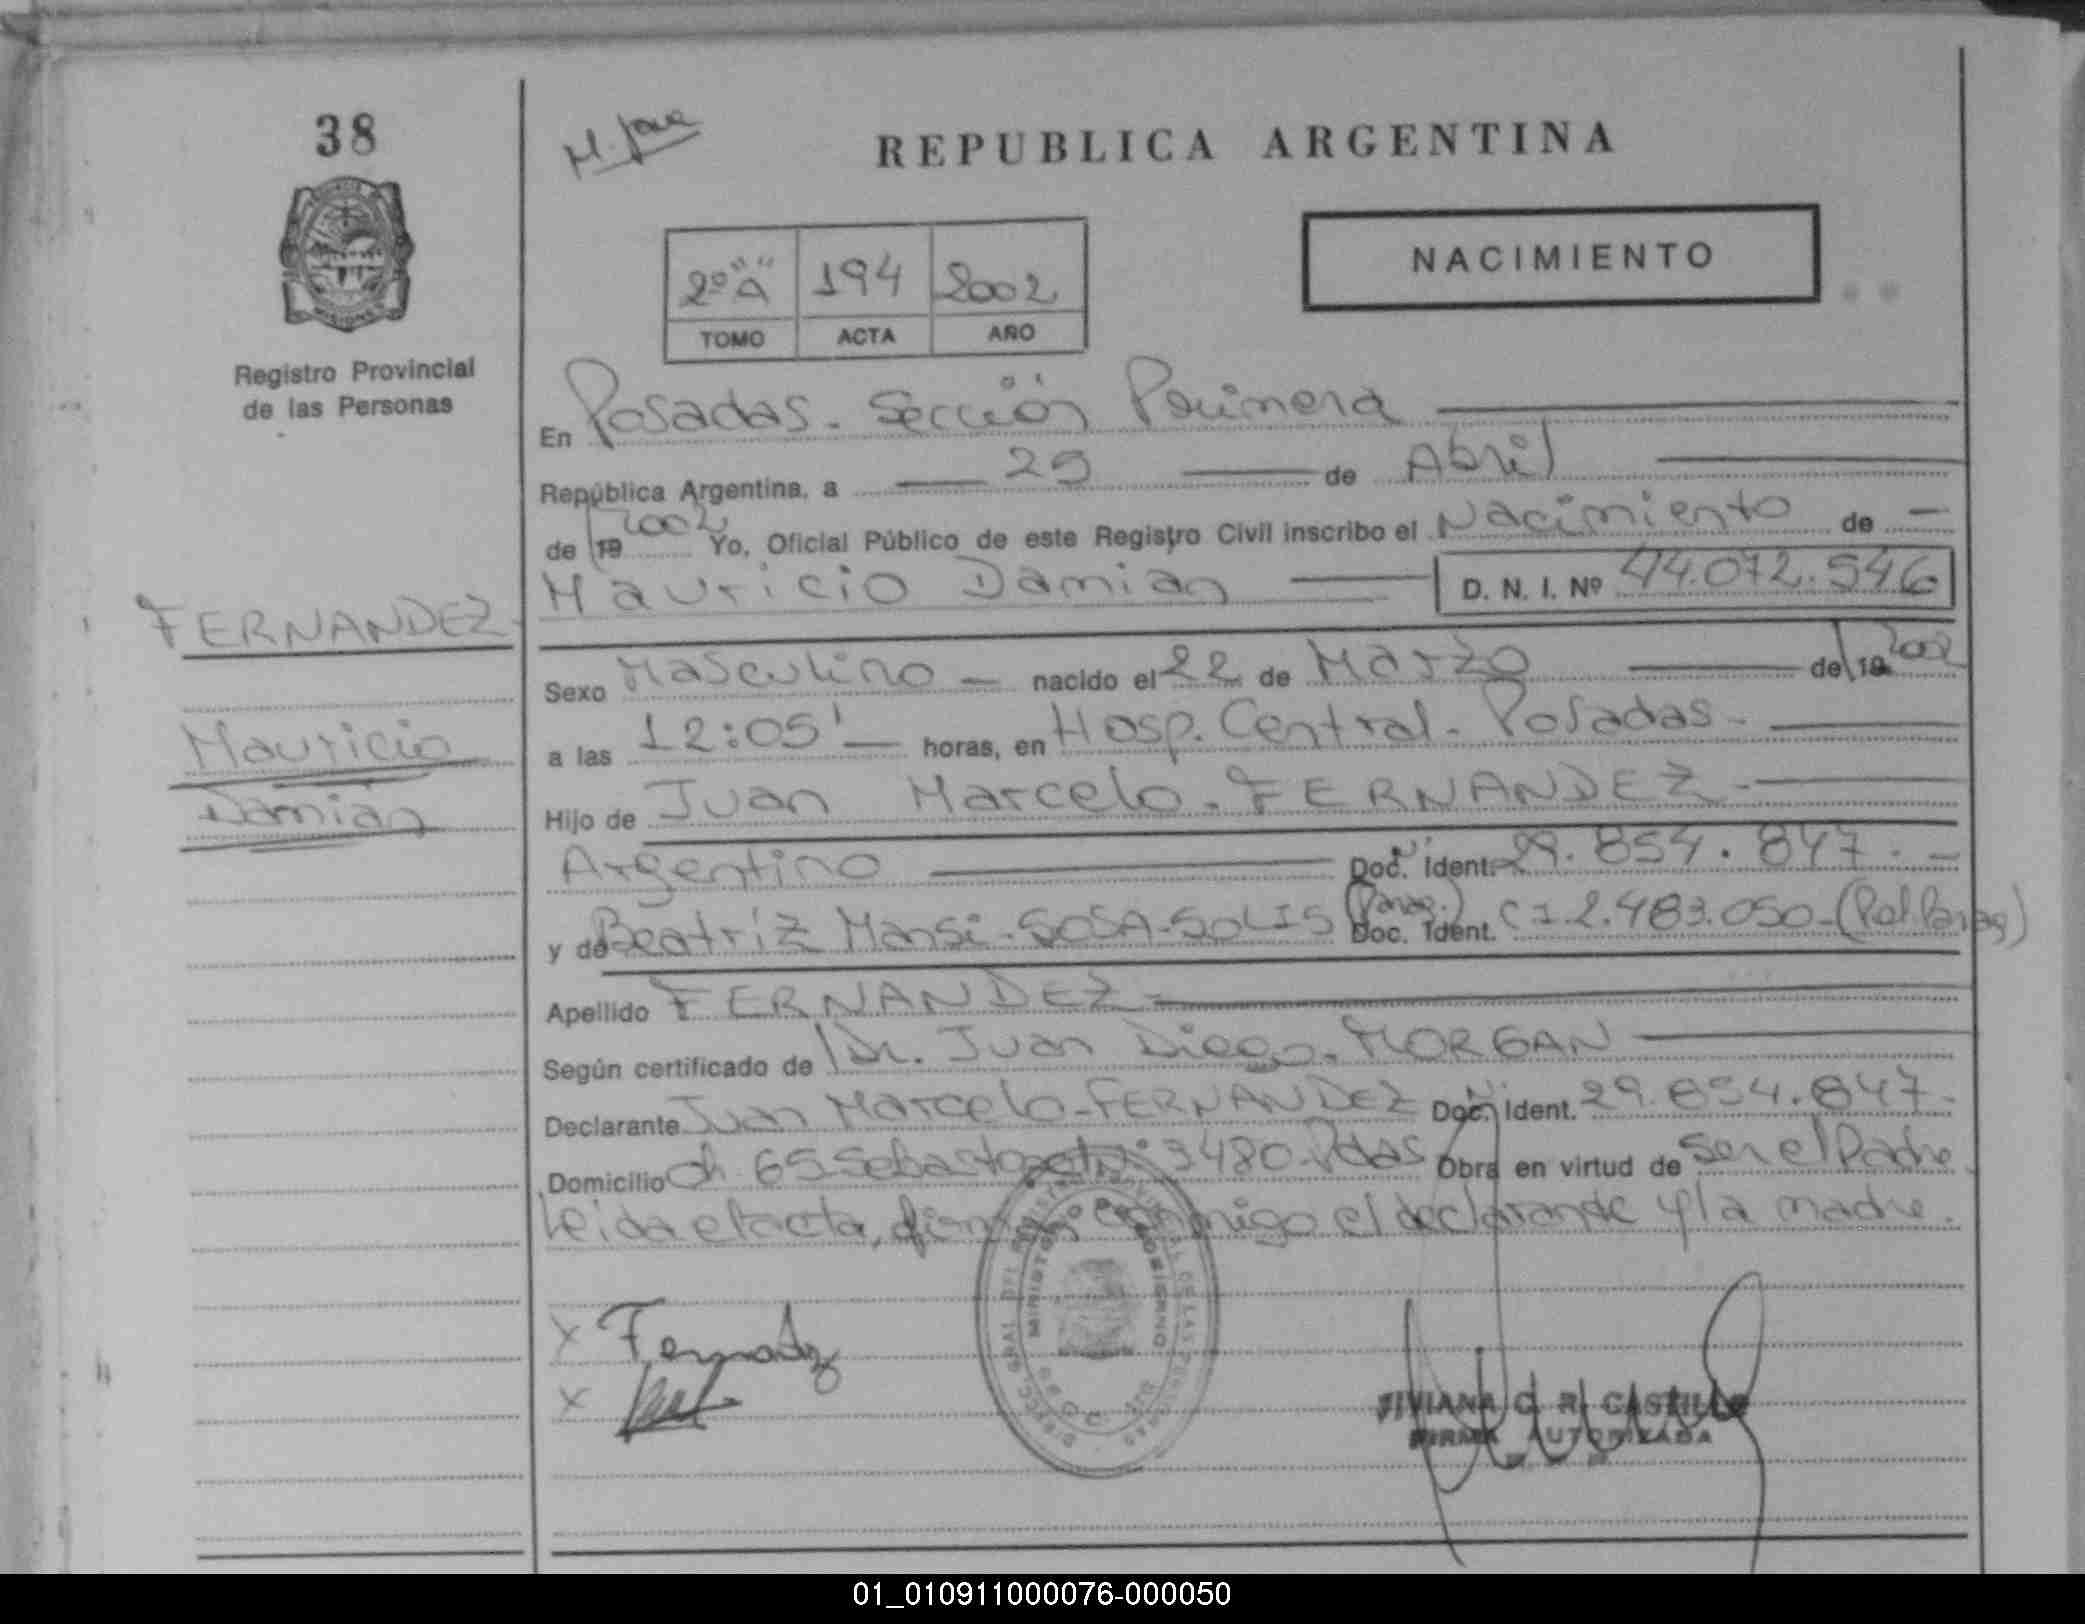 38
M. Jove
REPUBLICA ARGENTINA
NACIMIENTO
2º "A" 194 2002
TOMO ACTA AÑO
MISIONES
Registro Provincial
de las Personas
En Posadas. Sección Primera
República Argentina, a 29 de Abril
de 19 2002 Yo, Oficial Público de este Registro Civil inscribo el Nacimiento de
Mauricio Damian D. N. I. Nº 44.072.546
FERNANDEZ
Mauricio
Damian
Sexo Masculino nacido el 22 de Marzo de 19 2002
a las 12:05' horas, en Hosp. Central. Posadas
Hijo de Juan Marcelo. FERNANDEZ
Argentino Doc. Ident. 29.854.847.
y de Beatriz Mansi. SOSA-SOLIS (Parag.) Doc. Ident. CI 2.483.050 (Pol. Parag)
Apellido FERNANDEZ
Según certificado de Dr. Juan Diego. MORGAN
Declarante Juan Marcelo-FERNANDEZ Doc. Ident. 29.854.847
Domicilio Ch. 65 3480 Pdas Obra en virtud de ser el Padre
Leida el acta, firman conmigo el declarante y la madre.
MINISTERIO DE GOBIERNO
X Fernandez
X
VIVIANA C. R. CASTILLO
FIRMA AUTORIZADA
01_010911000076-000050